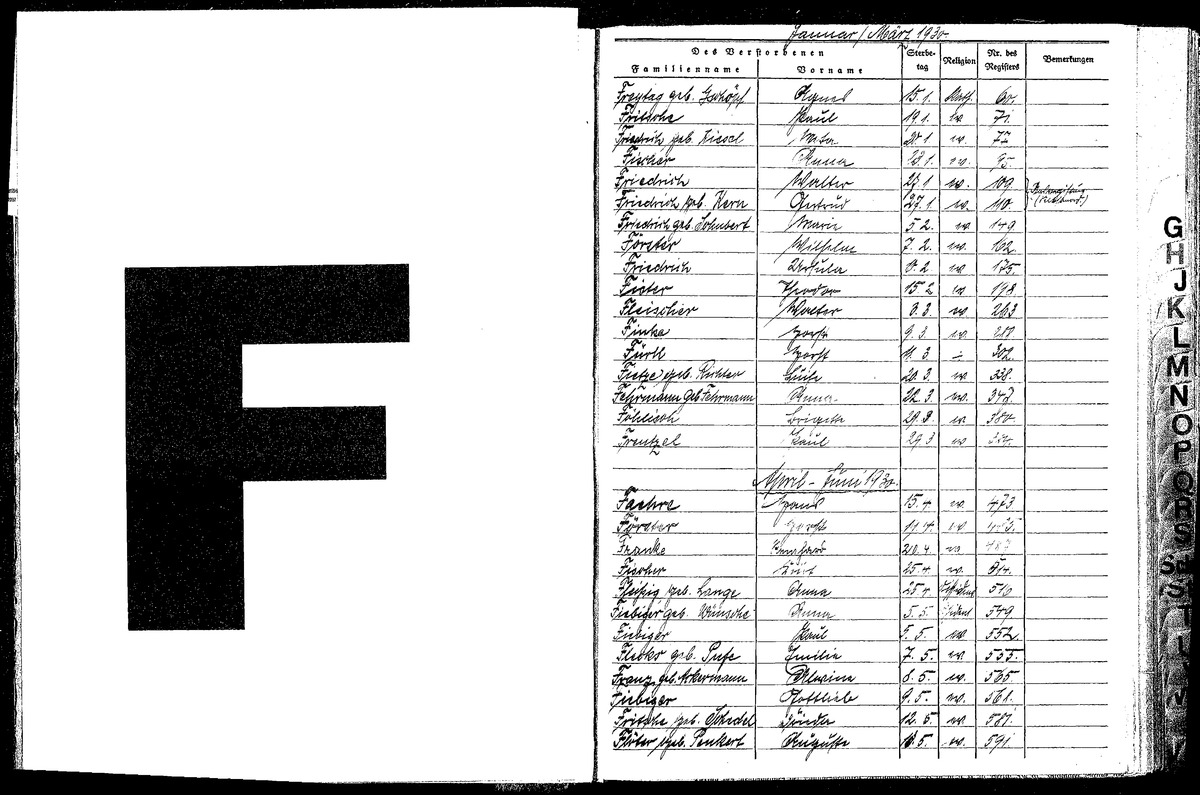 F
Januar / März 1930
Des Verstorbenen Sterbe-tag Religion Nr. des Registers Bemerkungen
Familienname Vorname
Freytag geb. Gschöpf Agnes 15.1. Kath. 60.
Fritsche Paul 19.1. ev. 71.
Friedrich geb. Kiesel 20.1 ev. 77
Fischer Anna 23.1. ev. 95.
Friedrich Walter 27.1 ev. 109
Friedrich geb. Kern Gertrud 27.1. ev. 110.
Friedrich geb. Schubert Marie 5.2. ev. 149
Förster Wilhelm 7.2. ev. 162
Friedrich Ursula 8.2 ev. 175
Fister Theodor 15.2 ev 198
Fleischer Walter 8.3. ev 263
Finke Horst 9.3. ev.
Fürll Horst 11.3. 302
Fietze geb. Richter 20.3. ev. 338.
Fehrmann geb Fehrmann Anna 22.3. ev. 347.
Föhlisch Brigitte 29.3. ev. 380.
Frentzel Paul 29.3 ev
April - Juni 1930.
Faehre Hans 15.4. ev. 473
Förster Horst 17.4. ev
Franke 20.4. ev.
Fischer Kurt 25.4 ev. 514.
geb. Lange Anna 25.4. 516
Fiebiger geb. Wünsche Anna 5.5. 549
Fiebiger Paul 5.5. ev. 552.
Flecks geb. Pufe Emilie 7.5. ev. 555.
Franz geb. Ackermann Alwine 8.5. ev. 565.
Fiebiger Gottlieb 9.5. ev. 568.
Fritsche geb. 12.5. ev 587.
Flöter geb. Penkert Auguste 13.5. ev. 591.
G
H
J
K
L
M
N
O
P